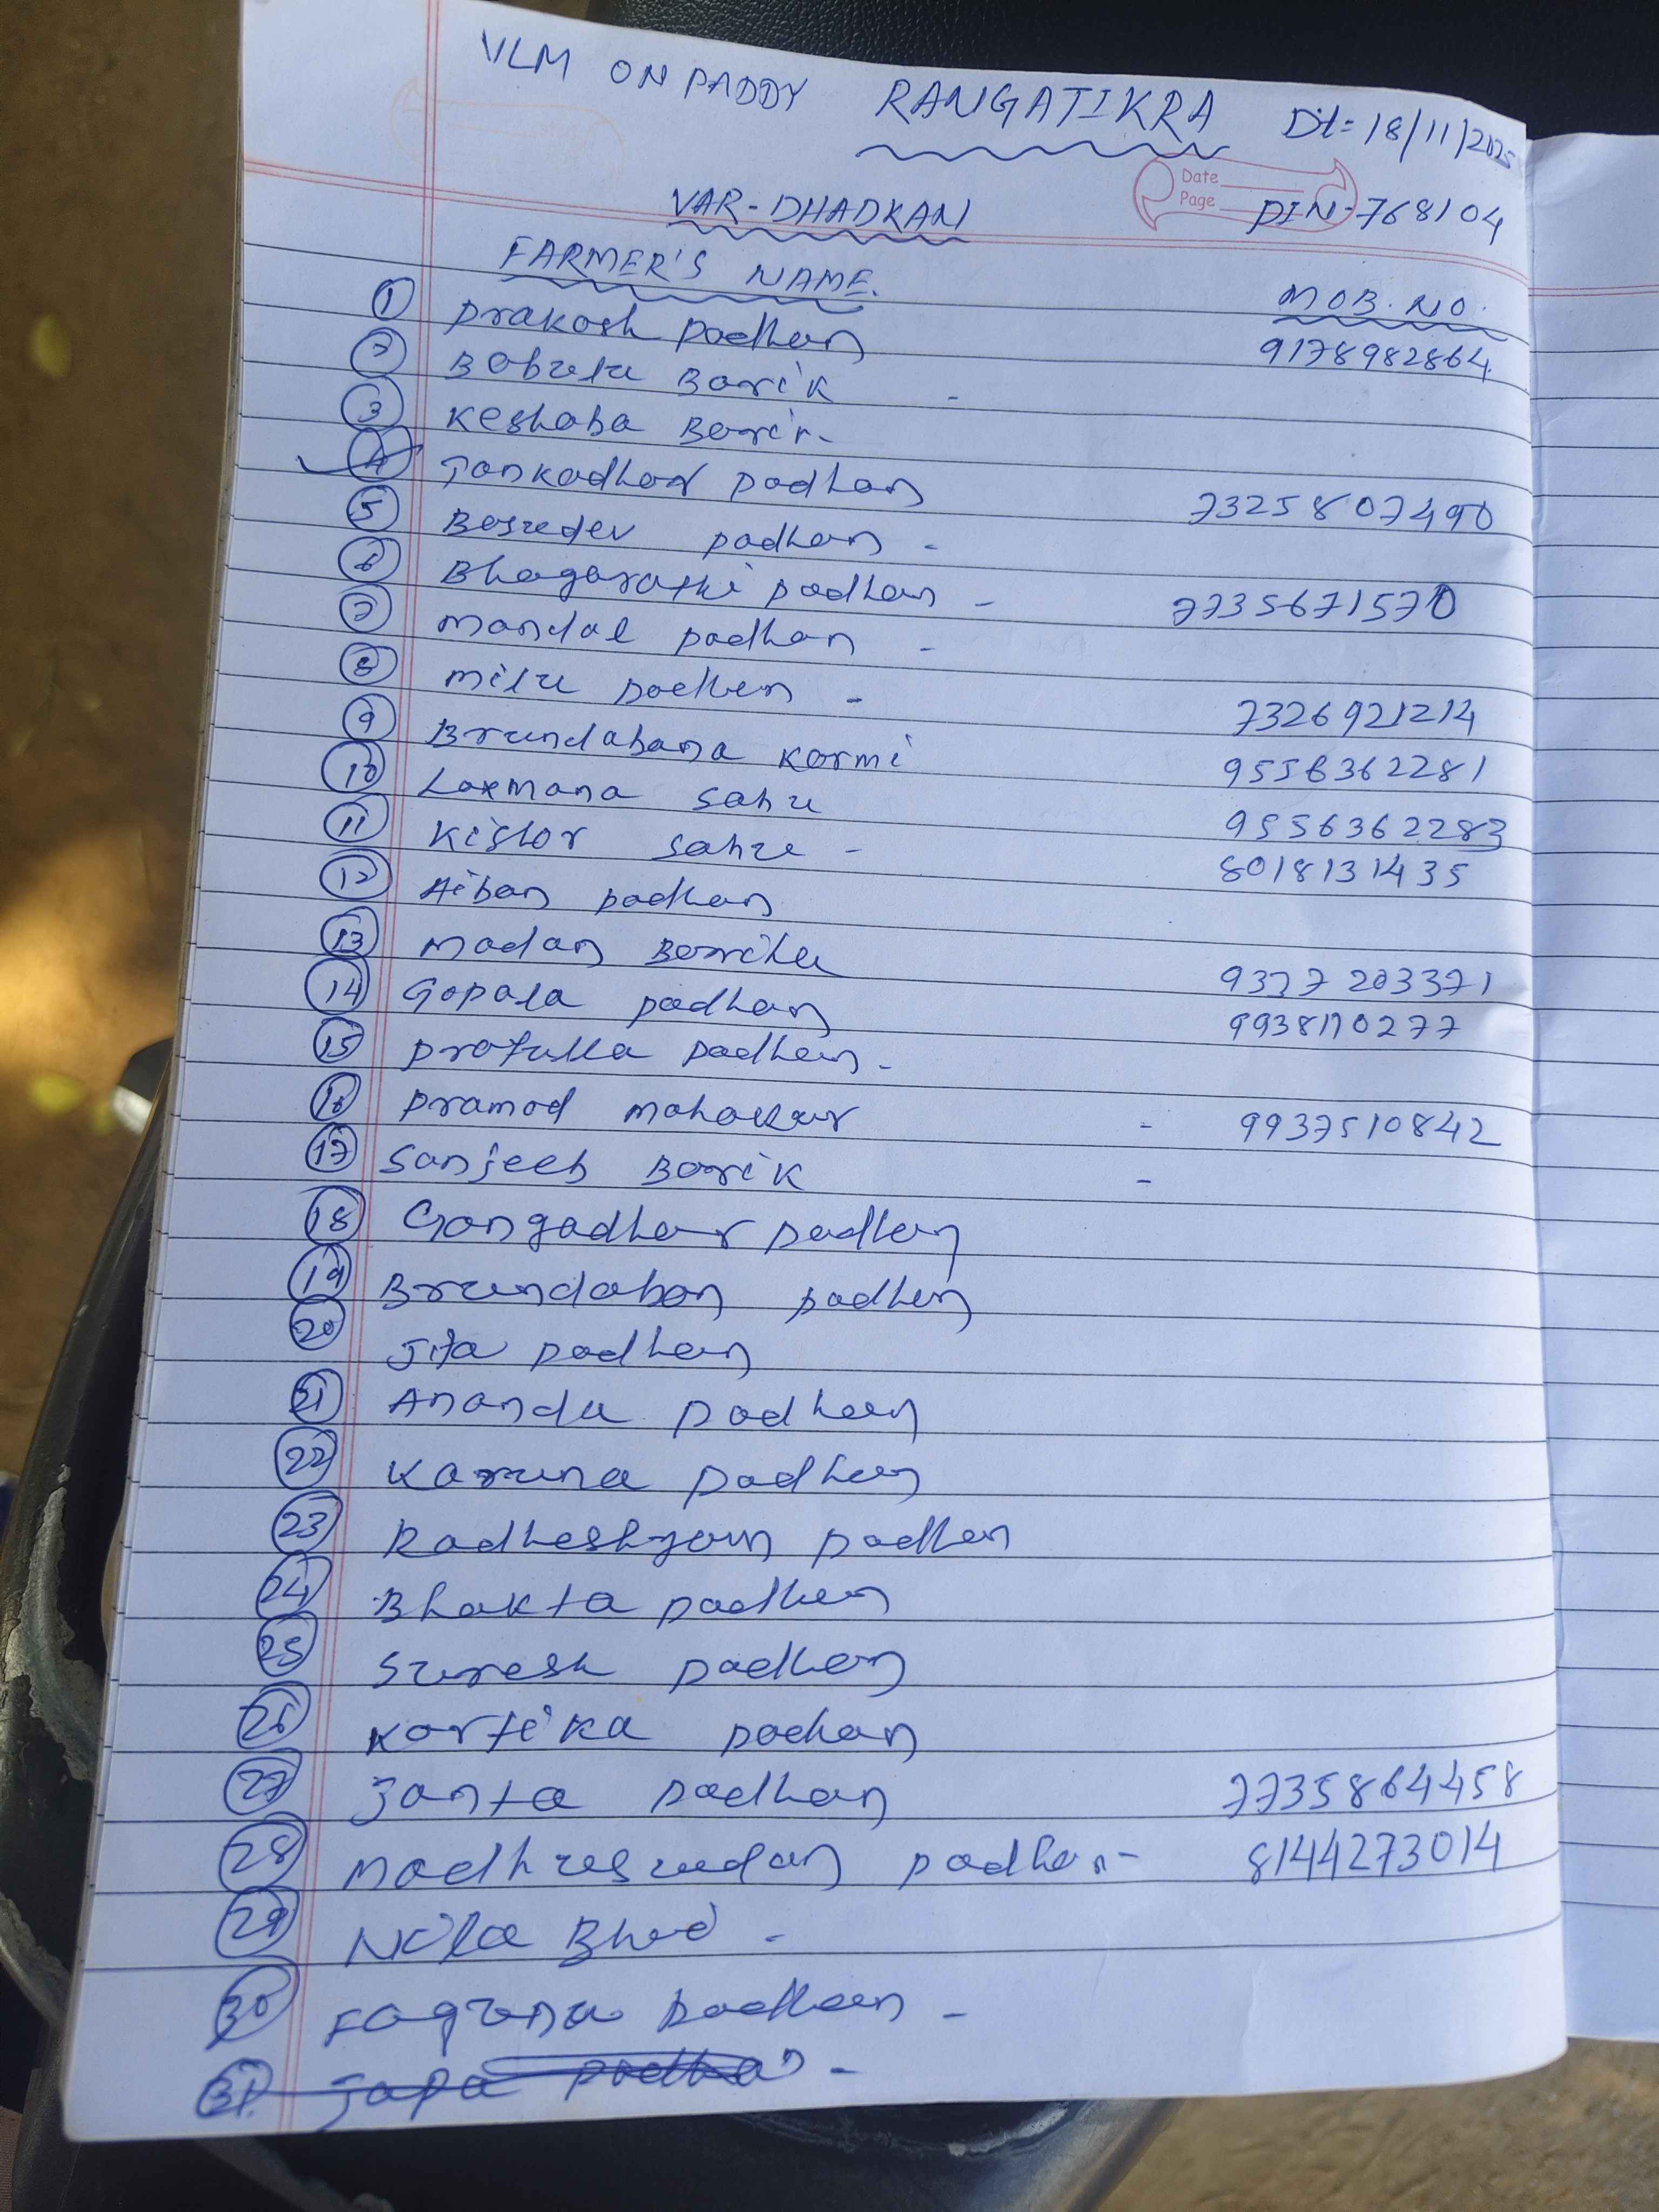 VLM ON PADDY RANGATIKRA Dt= 18/11/2025
Date
Page
VAR-DHADKAN PIN-768104
FARMER'S NAME. MOB. NO.
1 Prakosh padhan 9178982864
2 Babulu Barik -
3 Keshaba Barik -
4 Tankadhar padhan 7325807490
5 Basudev padhan -
6 Bhagarathi padhan - 7735671570
7 Mandal padhan -
8 Milu padhan - 7326921214
9 Brundabana karmi 9556362281
10 Laxmana sahu 9556362283
11 Kishor sahu - 8018131435
12 padhan
13 Madan Bariha 9327203371
14 Gopala padhan 9938170277
15 Profulla padhan -
16 Pramod - 9937510842
17 Sanjeeb Barik -
18 Gangadhar padhan
19 Brundaban padhan
20 Jita padhan
21 Ananda padhan
22 Karuna padhan
23 Radheshyam padhan
24 Bhakta padhan
25 Suresh padhan
26 Kartika padhan
27 Janta padhan 7735864458
28 Madhusudan padhan - 8144273014
29 Nila Bhoi -
30 Faguna padhan -
31 Japa padhan -